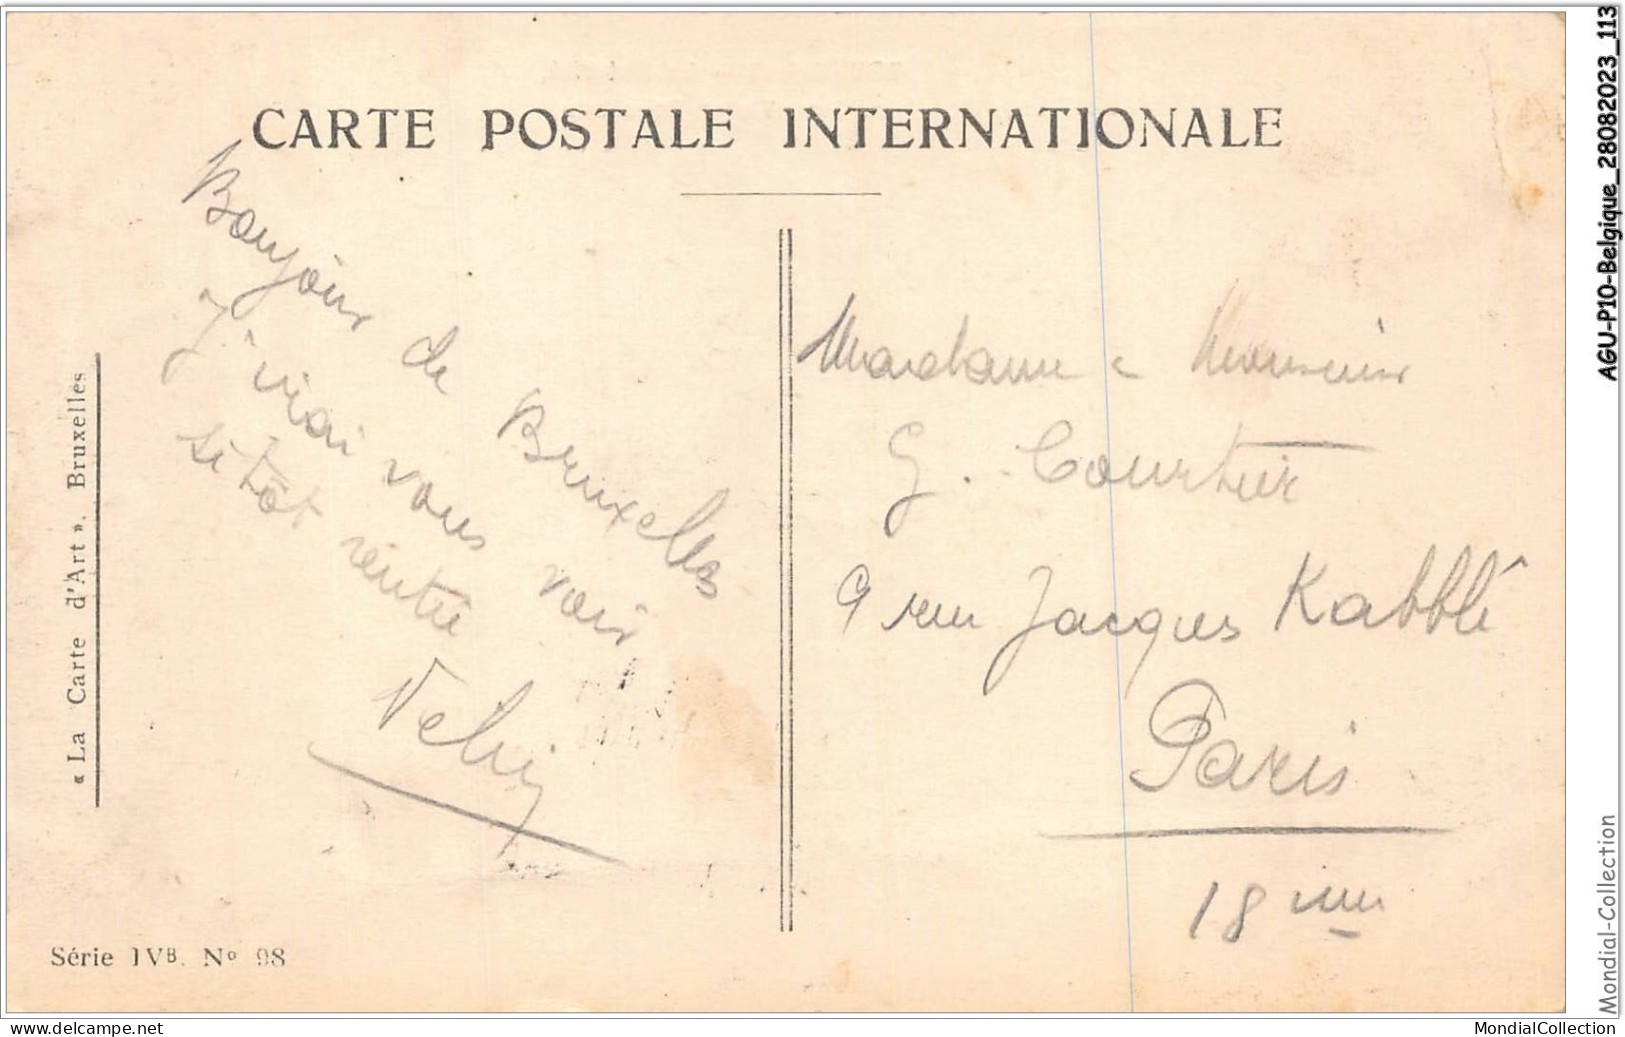 CARTE POSTALE INTERNATIONALE
Bonjour de Bruxelles
J'irai vous voir
sitôt rentré
« La Carte d'Art ». Bruxelles
Série IVB. No 98
Madame Monsieur
G. Courtier
9 rue Jacques Kabblé
Paris
18 eme
AGU-P10-Belgique_28082023_113
Mondial-Collection
www.delcampe.net
MondialCollection